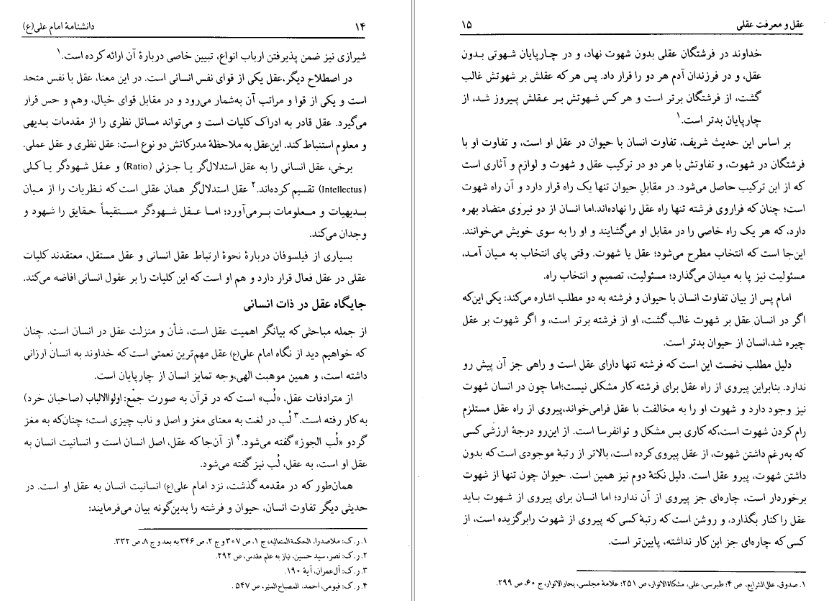 ۱۴ دانشنامهٔ امام علی(ع)
شیرازی نیز ضمن پذیرفتن ارباب انواع، تبیین خاصی دربارهٔ آن ارائه کرده است.۱
در اصطلاح دیگر،عقل یکی از قوای نفس انسانی است. در این معنا، عقل با نفس متحد
است و یکی از قوا و مراتب آن به‌شمار می‌رود و در مقابل قوای خیال، وهم و حس قرار
می‌گیرد. عقل قادر به ادراک کلیات است و می‌تواند مسائل نظری را از مقدمات بدیهی
و معلوم استنباط کند. این‌عقل به ملاحظهٔ مدرکاتش دو نوع است: عقل نظری و عقل عملی.
برخی، عقل انسانی را به عقل استدلال‌گر یا جزئی (Ratio) و عقل شهودگر یا کلی
(Intellectus) تقسیم کرده‌اند.۲ عقل استدلال‌گر همان عقلی است که نظریات را از میان
بدیهیات و معلومات بر‌می‌آورد؛ اما عقل شهودگر مستقیماً حقایق را شهود و
وجدان می‌کند.
بسیاری از فیلسوفان دربارهٔ نحوهٔ ارتباط عقل انسانی و عقل مستقل، معتقدند کلیات
عقلی در عقل فعال قرار دارد و هم او است که این کلیات را بر عقول انسانی افاضه می‌کند.
جایگاه عقل در ذات انسانی
از جمله مباحثی که بیانگر اهمیت عقل است، شأن و منزلت عقل در انسان است. چنان
که خواهیم دید از نگاه امام علی(ع) عقل مهم‌ترین نعمتی است که خداوند به انسان ارزانی
داشته است، و همین موهبت الهی،وجه تمایز انسان از چارپایان است.
از مترادفات عقل، «لُب» است که در قرآن به صورت جمع: اولوالالباب (صاحبان خرد)
به کار رفته است.۳ لُب در لغت به معنای مغز و اصل و ناب چیزی است؛ چنان‌که به مغز
گردو «لُب الجوز» گفته می‌شود.۴ از آن‌جا‌که عقل، اصل انسان است و انسانیت انسان به
عقل او است، به عقل، لُب نیز گفته می‌شود.
همان‌طور که در مقدمه گذشت، نزد امام علی(ع) انسانیت انسان به عقل او است. در
حدیثی دیگر تفاوت انسان، حیوان و فرشته را بدین‌گونه بیان می‌فرمایند:
۱. ر.ک: ملاصدرا، الحکمة المتعالیه، ج ۱، ص ۳۰۷ و ج ۲، ص ۳۴۶ به بعد و ج ۸، ص ۳۳۲.
۲. ر.ک: نصر، سید حسین، نیاز به علم مقدس، ص ۲۹۲.
۳. ر.ک: آل‌عمران، آیهٔ ۱۹۰.
۴. ر.ک: فیومی، احمد، المصباح المنیر، ص ۵۴۷.
عقل و معرفت عقلی ۱۵
خداوند در فرشتگان عقلی بدون شهوت نهاد، و در چارپایان شهوتی بدون
عقل، و در فرزندان آدم هر دو را قرار داد. پس هر که عقلش بر شهوتش غالب
گشت، از فرشتگان برتر است و هر کس شهوتش بر عقلش پیروز شد، از
چارپایان بدتر است.۱
بر اساس این حدیث شریف، تفاوت انسان با حیوان در عقل او است، و تفاوت او با
فرشتگان در شهوت، و تفاوتش با هر دو در ترکیب عقل و شهوت و لوازم و آثاری است
که از این ترکیب حاصل می‌شود. در مقابلِ حیوان تنها یک راه قرار دارد و آن راه شهوت
است؛ چنان که فراروی فرشته تنها راه عقل را نهاده‌اند.اما انسان از دو نیروی متضاد بهره
دارد، که هر یک راه خاصی را در مقابل او می‌گشایند و او را به سوی خویش می‌خوانند.
این‌جا است که انتخاب مطرح می‌شود؛ عقل یا شهوت. وقتی پای انتخاب به میان آمد،
مسئولیت نیز پا به میدان می‌گذارد؛ مسئولیت، تصمیم و انتخاب راه.
امام پس از بیان تفاوت انسان با حیوان و فرشته به دو مطلب اشاره می‌کند: یکی این‌که
اگر در انسان عقل بر شهوت غالب گشت، او از فرشته برتر است، و اگر شهوت بر عقل
چیره شد،انسان از حیوان بدتر است.
دلیل مطلب نخست این است که فرشته تنها دارای عقل است و راهی جز آن پیش رو
ندارد. بنابراین پیروی از راه عقل برای فرشته کار مشکلی نیست؛اما چون در انسان شهوت
نیز وجود دارد و شهوت او را به مخالفت با عقل فرامی‌خواند،پیروی از راه عقل مستلزم
رام کردن شهوت است،که کاری بس مشکل و توانفرسا است. از این‌رو درجهٔ ارزشی کسی
که به‌رغم داشتن شهوت، از عقل پیروی کرده است، بالاتر از رتبهٔ موجودی است که بدون
داشتن شهوت، پیرو عقل است. دلیل نکتهٔ دوم نیز همین است. حیوان چون تنها از شهوت
برخوردار است، چاره‌ای جز پیروی از آن ندارد؛ اما انسان برای پیروی از شهوت باید
عقل را کنار بگذارد، و روشن است که رتبهٔ کسی که پیروی از شهوت را‌برگزیده است، از
کسی که چاره‌ای جز این کار نداشته، پایین‌تر است.
۱. صدوق، علل‌الشرایع، ص ۴؛ طبرسی، علی، مشکاةالانوار، ص ۲۵۱؛ علامهٔ مجلسی، بحارالانوار، ج ۶۰، ص ۲۹۹.